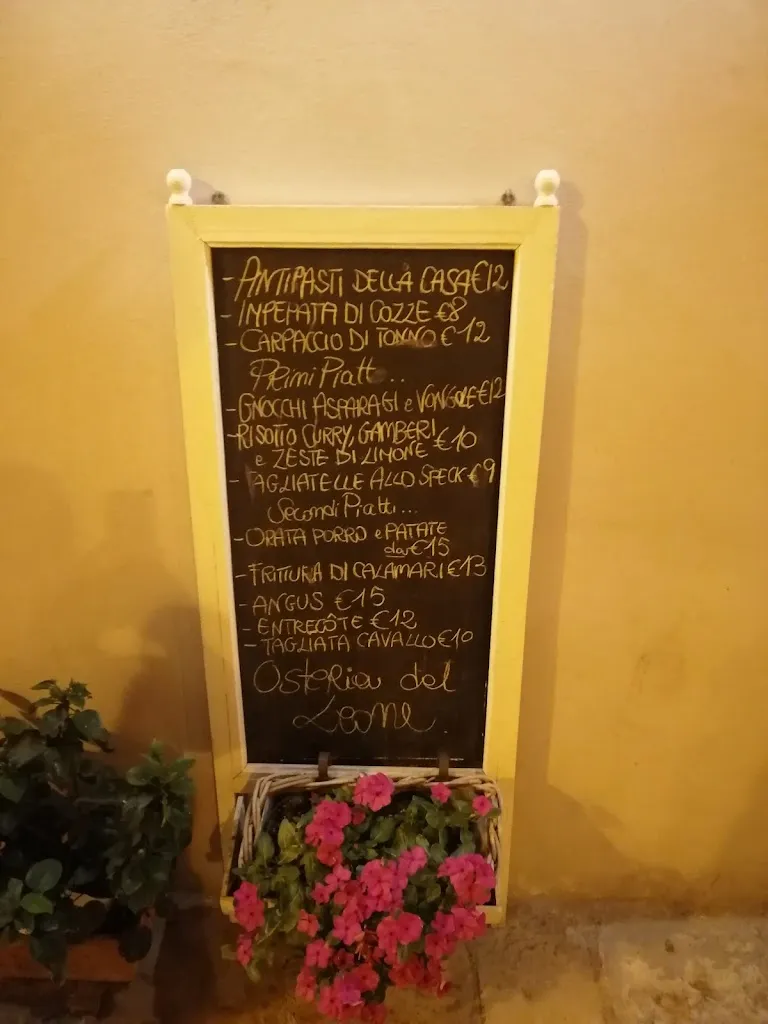 - ANTIPASTI DELLA CASA €12
- INPEPATA DI COZZE €8
- CARPACCIO DI TONNO € 12
Primi Piatti...
- GNOCCHI ASPARAGI e VONGOLE €12
- RISOTTO CURRY, GAMBERI
e ZESTE DI LIMONE €10
- TAGLIATELLE ALLO SPECK €9
Secondi Piatti...
- ORATA PORRO e PATATE
da €15
- FRITTURA DI CALAMARI €13
- ANGUS €15
- ENTRECÔTE €12
- TAGLIATA CAVALLO €10
Osteria del
Leone